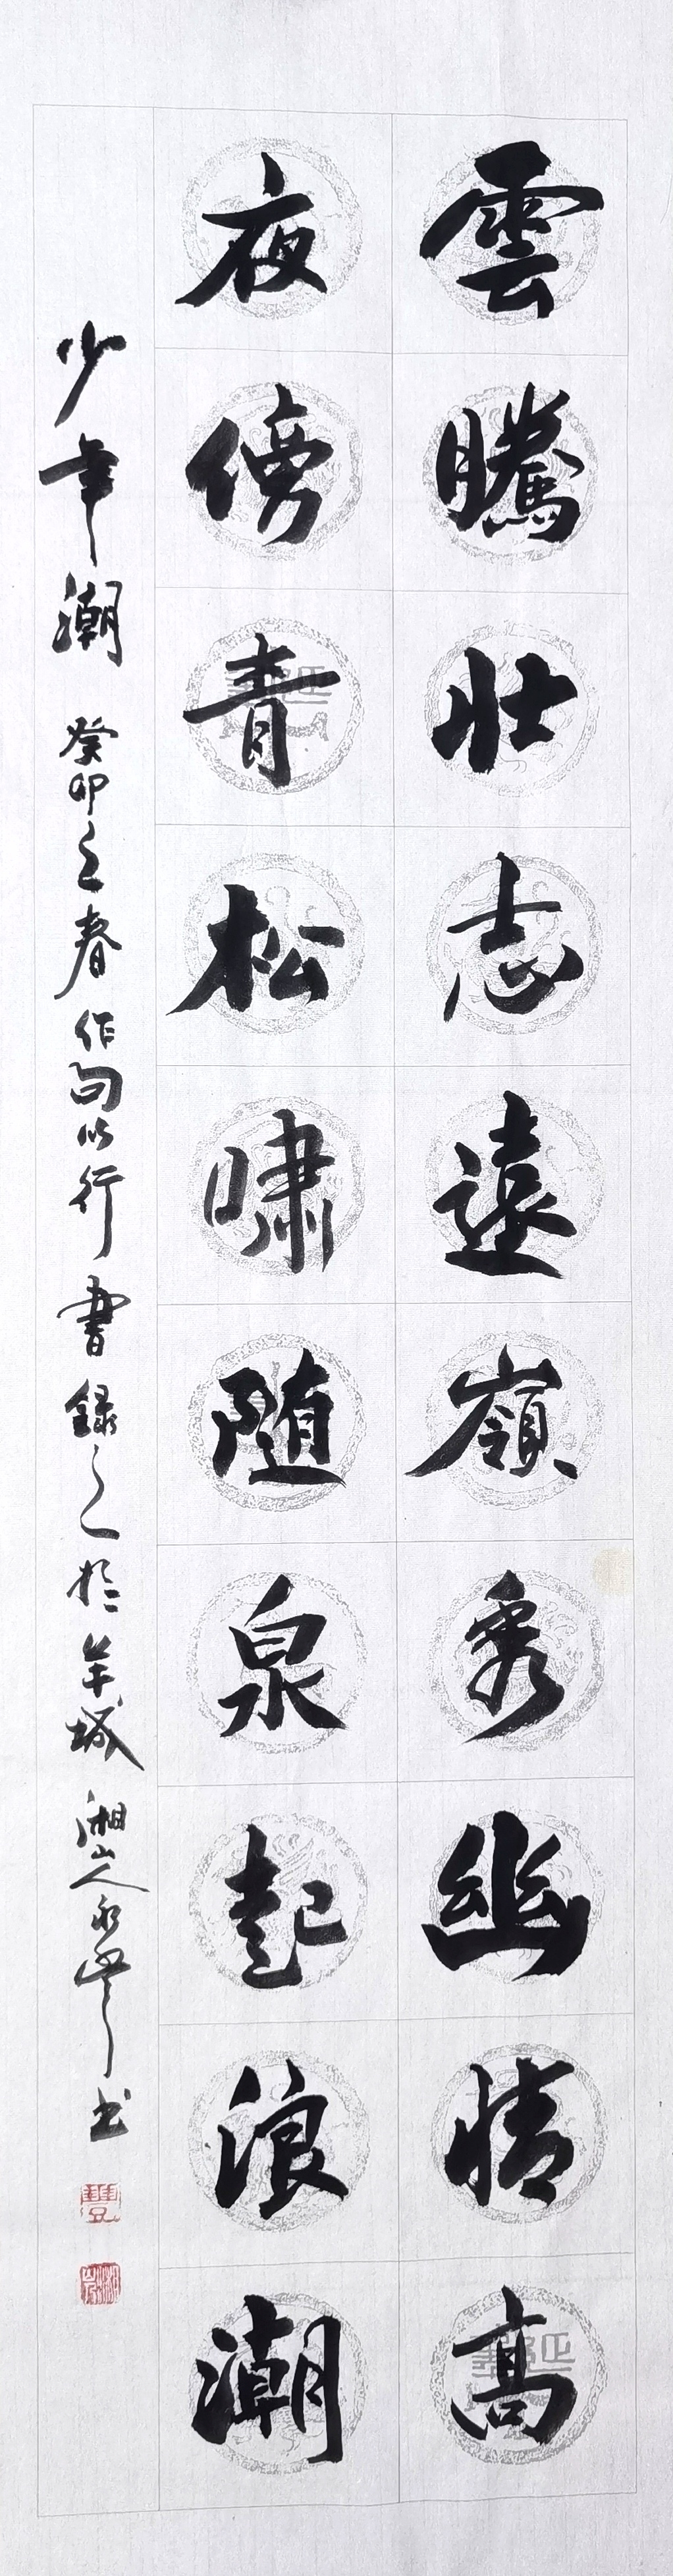 雲騰壯志遠嶺秀幽情高
夜傍青松嘯随泉起浪潮
少年潮 癸卯之春作句以行書録之於羊城 湘山人永豐书
豐